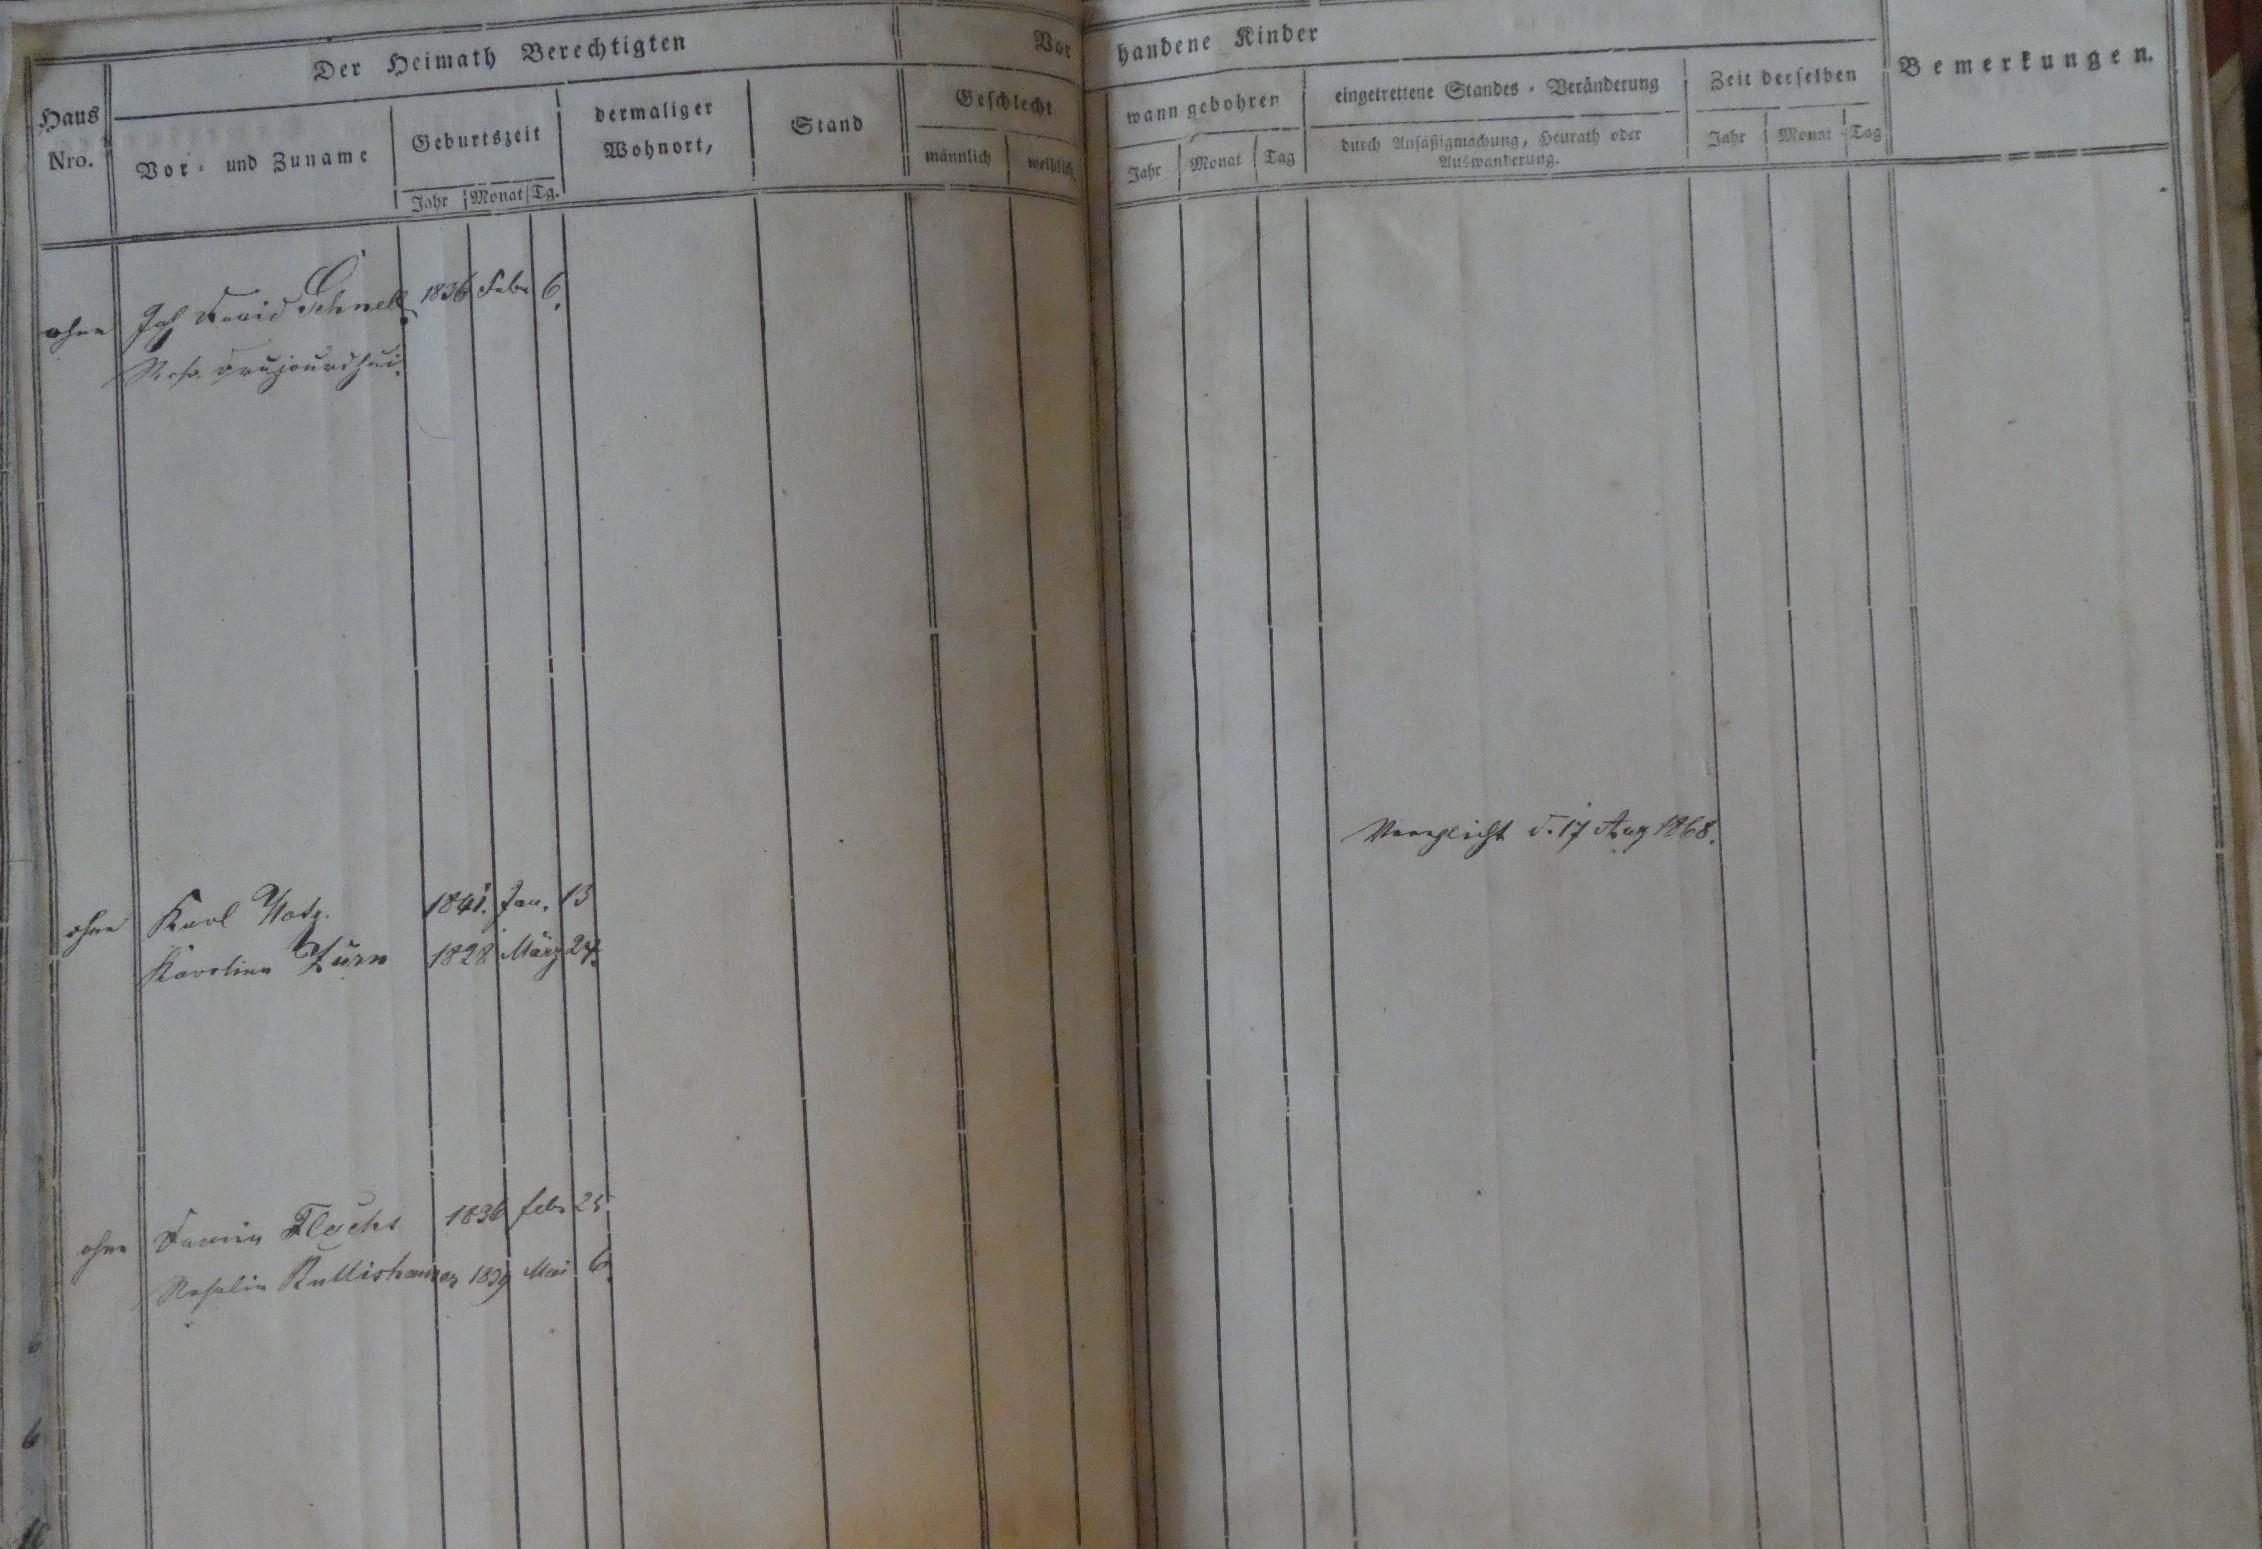 Der Heimath Berechtigten
Vorhandene Kinder
Bemerkungen.
Haus Nro.
Vor- und Zuname
Geburtszeit
Jahr Monat Tg.
dermaliger Wohnort,
Stand
Geschlecht
männlich weiblich
wann gebohren
Jahr Monat Tag
eingetrettene Standes-Veränderung
durch Ansäßigmachung, Heurath oder
Auswanderung.
Zeit derselben
Jahr Monat Tag
ohne Joh David Schnell 1836 Febr 6.
Verehlicht d. 17 Aug 1868.
ohne Karl 1841. Jan. 13
Karolina Zürn 1828 März 24.
ohne Flachs 1836 febr 25
Rosalia Ruttishauser 1839 Mai 6.